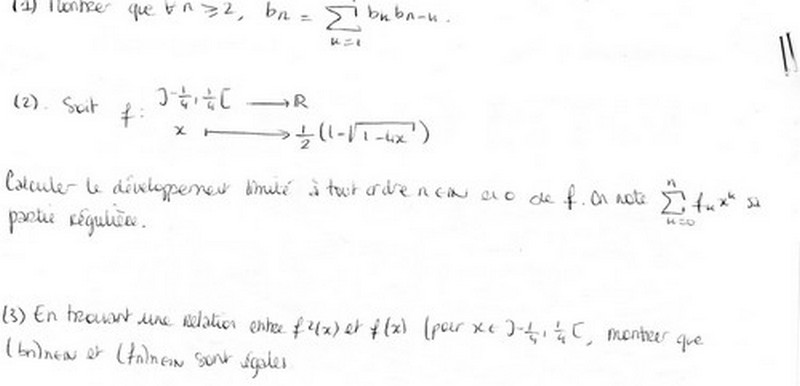 (1) Montrer que ∀ n ≥ 2, bn = ∑ bk bn-k.
k=1
(2). Soit f: ]-1/4, 1/4[ → R
x ↦ 1/2 (1-√1-4x)
Calculer le développement limité à tout ordre n∈N en 0 de f. On note ∑ fk x^k sa
n
k=0
partie régulière.
(3) En trouvant une relation entre f²(x) et f(x) (pour x ∈ ]-1/4, 1/4[, montrer que
(bn)n∈N et (fn)n∈N sont égales